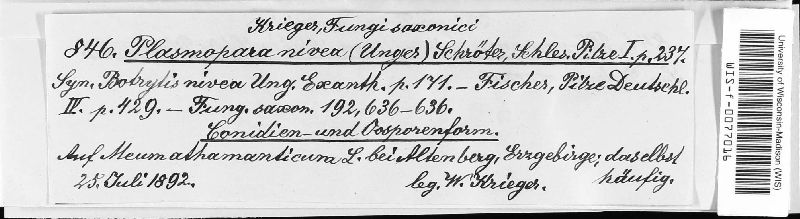 Krieger, Fungi saxonici
846. Plasmopara nivea (Unger) Schröter, Schles. Pilze I. p. 237.
Syn. Botrytis nivea Ung. Exanth. p. 171. – Fischer, Pilze Deutschl.
IV. p. 429. – Fung. saxon. 192, 636–636.
Conidien- und Oosporenform.
Auf Meum athamanticum L. bei Altenberg, Erzgebirge; daselbst
häufig.
25. Juli 1892. leg. W. Krieger.
University of Wisconsin-Madison (WIS)
WIS-f-0077016